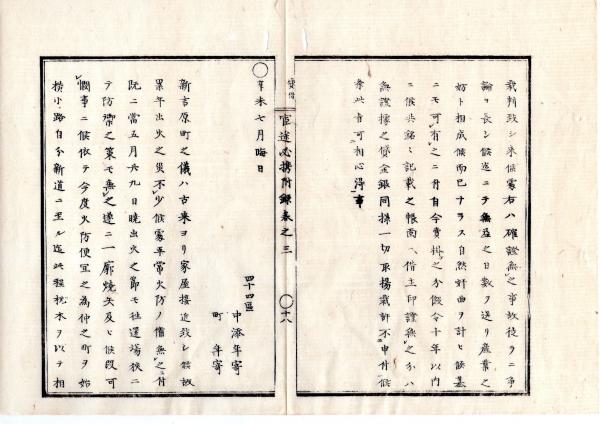 裁判致シ来候處右ハ確證無之事故徒ラニ爭
論リ長シ候迄ニテ無益之日數ヲ送リ産業之
妨ト相成候而已ナラス自然奸曲ヲ計ヒ候基
ニモ可有之ニ付自今賣掛之分假令十年以内
ニ候共銘ニ記載之帳面ヘ借主印證無之分ハ
無證據之貸金銀同様一切取揚裁許不申付候
条此旨可相心得事
貸借
官途必携附録巻之三
十八
辛未七月晦日
四十四區
中添年寄
町年寄
新吉原町之儀ハ古来ヨリ家屋接近致シ候故
累年出火之災不少候處平常火防ノ備無之付
既ニ當五月廿九日曉出火之節モ往還場狭ニ
テ防禦之策モ無之遂ニ一廓燒失及ヒ候段可
憫事ニ候依テ今度火防便宜之為仲之町ヲ始
横小路自分新道ニ至ル迄此程杭木ヲ以テ相